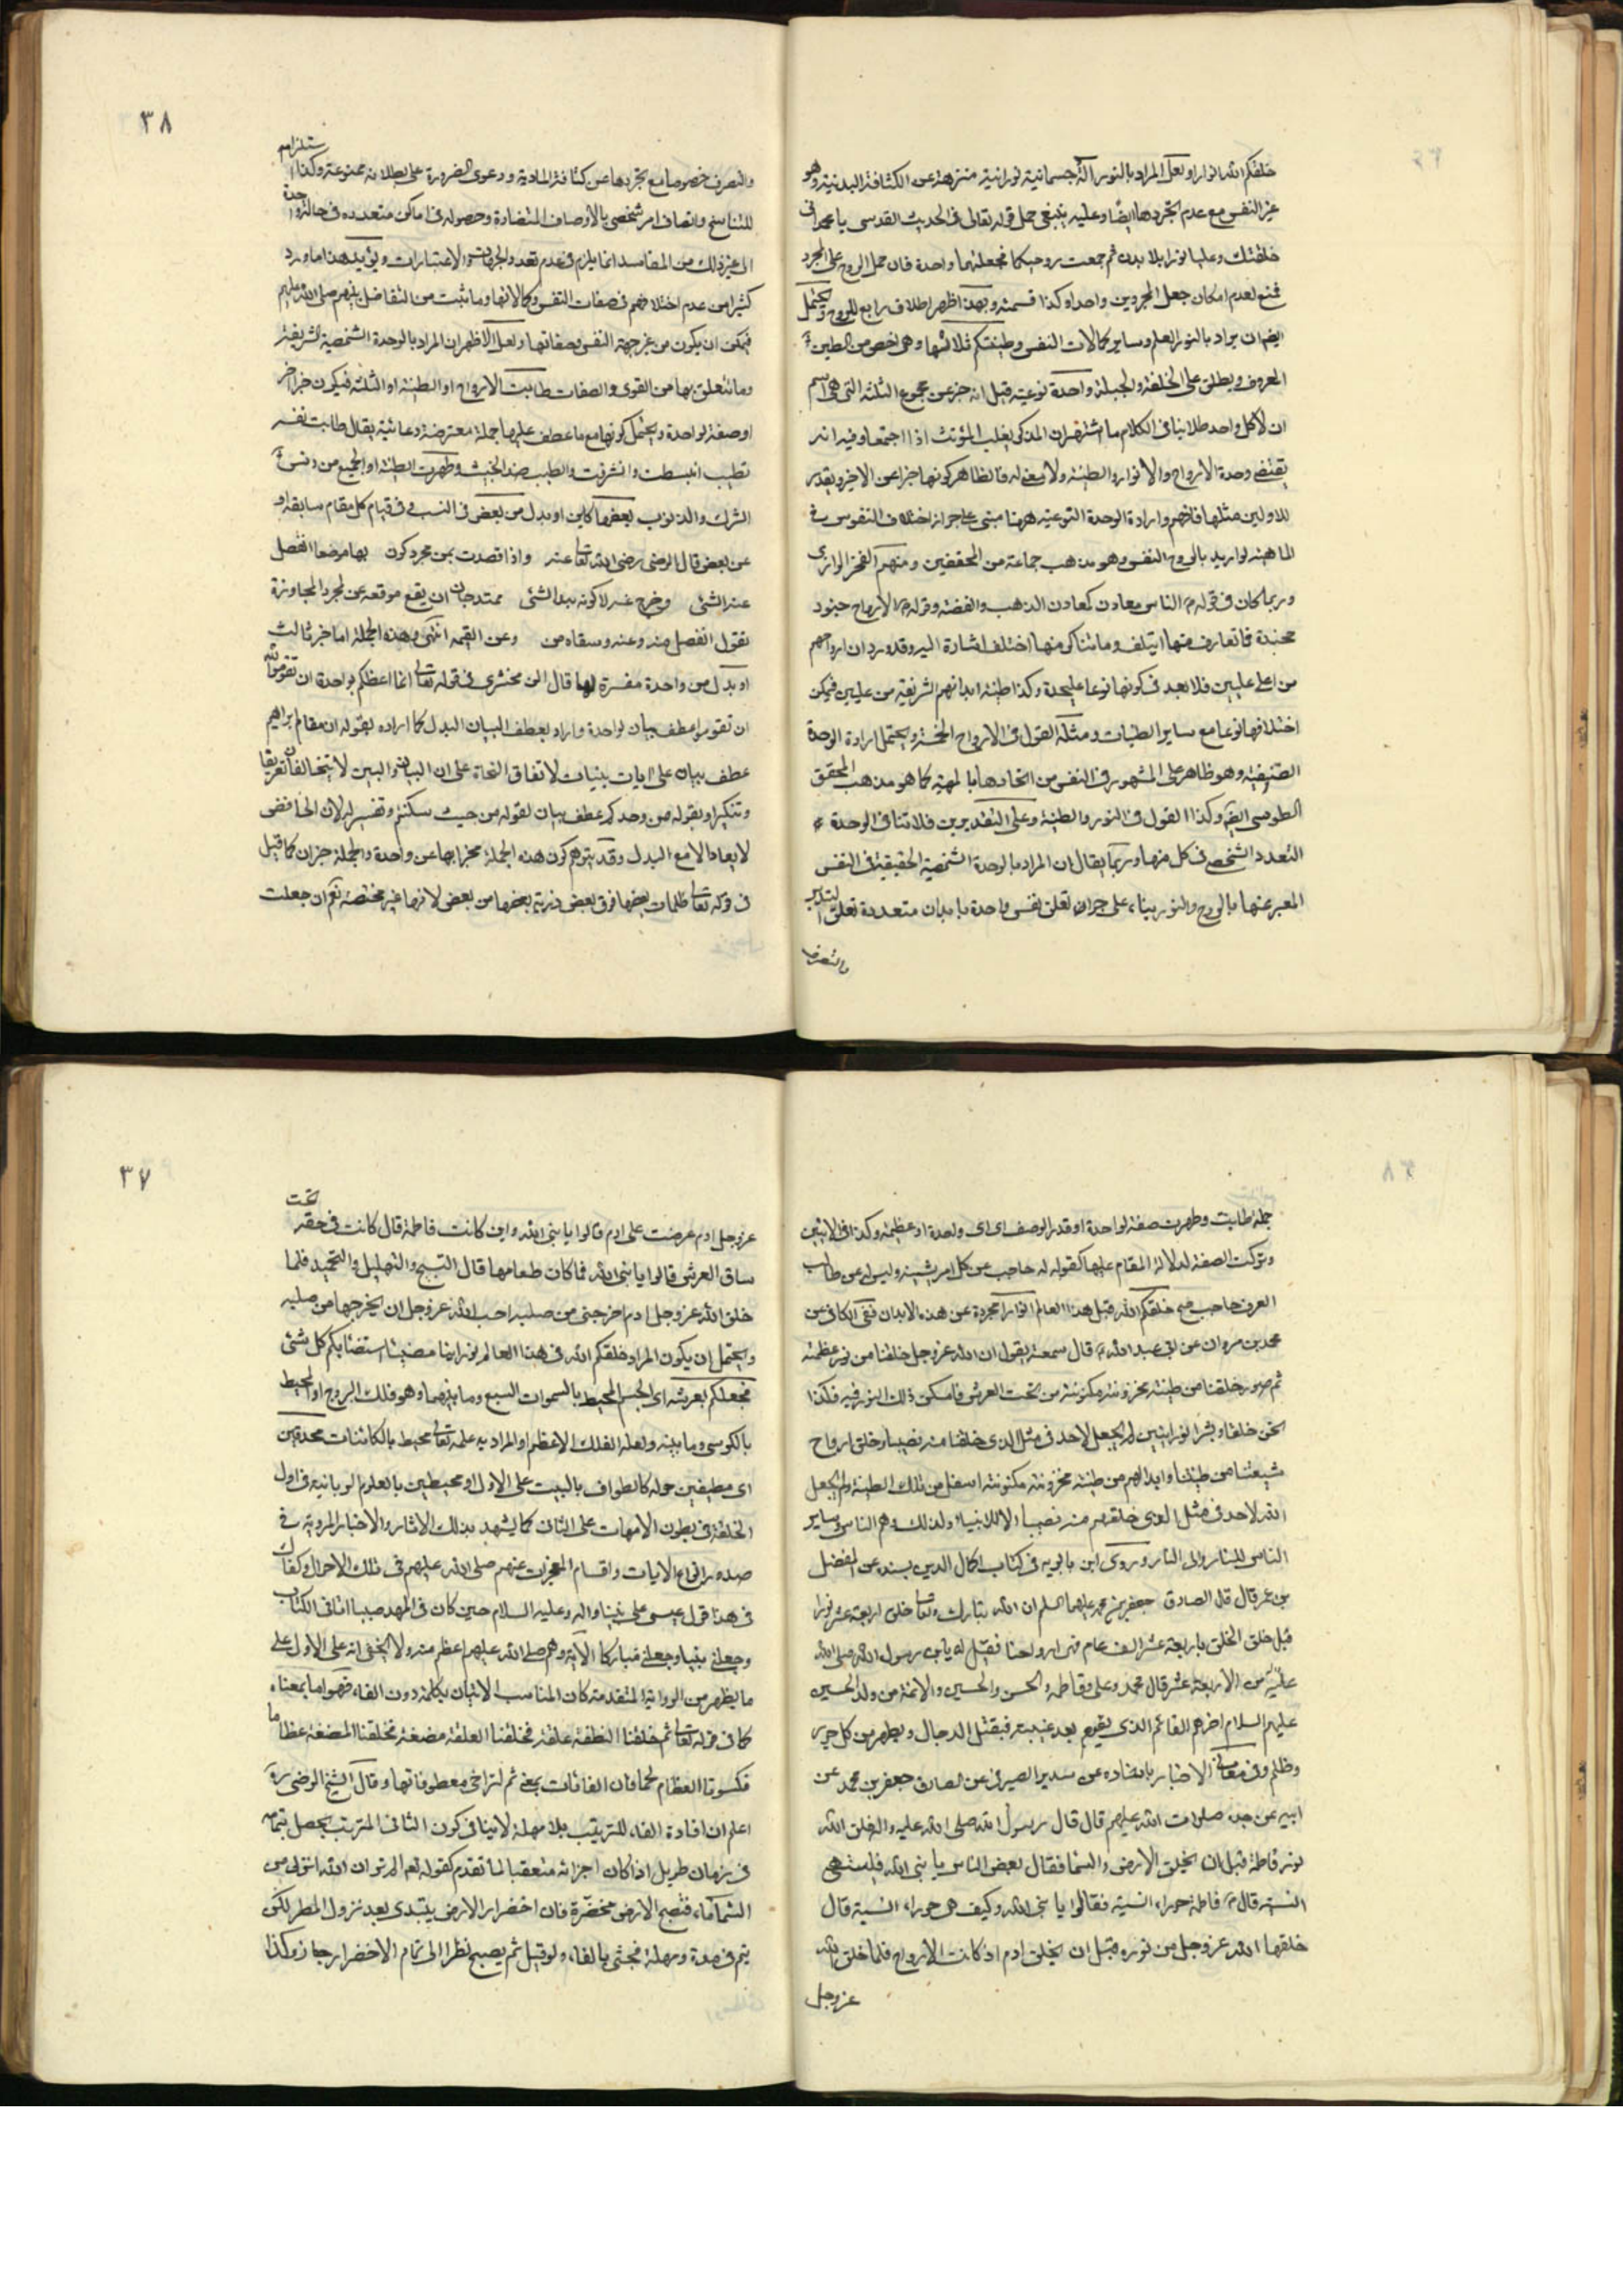 خلقكم الله انوارا و لعل المراد بالنور آلة جسمانية نورانية منزهة عن الكثافة البدنية وهو
غير النفس مع عدم تجردها ايضا وعليه ينبغي حمل قوله تعالى في الحديث القدسي يا محمد انى
خلقتك وعليا نورا بلا بدن ثم جمعت روحيكما فجعلتهما واحدة فان حمل الروح على المجرد
ممتنع لعدم امكان جعل المجردين واحدا وكذا قسمته وبهذا ظهر اطلاق رابع للروح ويحتمل
ايضا ان يراد بالنور العلم وساير كمالات النفس وطينتكم ثلاثتها وهى اخص من الطين
المعروف ويطلق على الخلقة والجبلة واحدة نوعية قيل انه خبر عن مجموع الثلثة التى هى اسم
ان لا كل واحد فلا ينافى الكلام ما اشتهر ان المذكر يغلب المؤنث اذا اجتمعا وفيه انه
يقتضى وحدة الارواح والانوار والطينة ولا معنى له فالظاهر كونها خبرا عن الاخير ويقدر
للاولين مثلها فافهم وارادة الوحدة النوعية ههنا مبنى على جواز اختلاف النفوس فى
الماهية لو اريد بالروح النفس وهو مذهب جماعة من المحققين ومنهم الفخر الرازى
وربما كان فى قوله ع الناس معادن كمعادن الذهب والفضة وقوله ع الارواح جنود
مجندة فما تعارف منها ايتلف وما تناكر منها اختلف اشارة اليه وقد ورد ان ارواحهم
من اعلى عليين فلا بعد فى كونها نوعا عليحدة وكذا طينة ابدانهم الشريفة من عليين فيمكن
اختلافها نوعا مع ساير الطينات ومثله القول فى الارواح الخمسة ويحتمل ارادة الوحدة
الصنفية وهو ظاهر على المشهور فى النفس من اتحادها بالمهية كما هو مذهب المحقق
الطوسى ايضا وكذا القول فى النور والطينة وعلى التقديرين فلا تنافى الوحدة
التعدد الشخصى فى كل منها وربما يقال ان المراد بالوحدة الشخصية الحقيقية فى النفس
المعبر عنها بالروح والنور بناء على جواز تعلق نفس واحدة بابدان متعددة تعلق التدبير
والتصرف
٣٨
والتصرف خصوصا مع تجردها عن كثافة المادية ودعوى الضرورة على بطلانه ممنوعة وكذا استلزامه
للتناسخ واتصاف امر شخصى بالاوصاف المتضادة وحصوله فى اماكن متعددة فى حالة واحدة
الى غير ذلك من المفاسد انما يلزم فى عدم تعدد الجهات والاعتبارات ويؤيد هذا ما ورد
كثيرا من عدم اختلافهم فى صفات النفس وكمالاتها وما ثبت من التفاضل بينهم صلى الله عليهم
فيمكن ان يكون من غير جهة النفس وصفاتها ولعل الاظهر ان المراد بالوحدة الشخصية الشريفة
وما يتعلق بها من القوى والصفات طابت الارواح او الطينة او الثلثة فيكون خبرا اخر
او صفة لواحدة ويحتمل كونها مع ما عطف عليها جملة معترضة دعائية يقال طابت نفسه
تطيب انبسطت وانشرفت والطيب ضد الخبث وطهرت الطينة او الجميع من دنس
الشرك والذنوب بعضها كاين او بدل من بعض فى النسب وفى قيام كل مقام سابقه او
عن بعض قال الرضى رضى الله تعالى عنه واذا قصدت بمن مجرد كون بها موضعا انفصل
عنه الشئ وخرج عنه لا كونه مبدا لشئ ممتد جاز ان يقع موقعه عن لمجرد المجاوزة
تقول انفصل منه وعنه وسقاه من وعن القيمه انتهى وهذه الجملة اما خبر ثالث
او بدل من واحدة مفسرة لها قال الزمخشرى فى قوله تعالى انما اعظكم بواحدة ان تقوموا لله
ان تقوموا عطف بيان لواحدة واراد بعطف البيان البدل كما اراده بقوله ان مقام ابراهيم
عطف بيان على ايات بينات لاتفاق النحاة على ان البيان والمبين لا يتخالفان تعريفا
وتنكيرا وبقوله من وجدكم عطف بيان لقوله من حيث سكنتم وتفسير له لان الخافض
لا يعاد الا مع البدل وقد يتوهم كون هذه الجملة مخبرا بها عن واحدة والجملة خبران كما قيل
فى قوله تعالى ظلمات بعضها فوق بعض بعضها من بعض لانها غير مختصة نعم ان جعلت
جملة طابت وطهرت صفة لواحدة او قدر الوصف اى اى واحدة او عظيمة وكذا فى الاثنين
وتركت الصفة لدلالة المقام عليها كقوله له حاجب عن كل امر يشينه وليس له عن طالب
العرف حاجب صح خلقكم الله قبل هذا العالم انوارا مجردة عن هذه الابدان ففى الكافى عن
محمد بن مروان عن ابى عبد الله ع قال سمعته يقول ان الله عز وجل خلقنا من نور عظمته
ثم صور خلقنا من طينة مخزونة مكنونة من تحت العرش فاسكن ذلك النور فيه فكنا
نحن خلقا وبشرا نورانيين لم يجعل لاحد فى مثل الذى خلقنا منه نصيبا وخلق ارواح
شيعتنا من طينتنا وابدانهم من طينة مخزونة مكنونة اسفل من تلك الطينة ولم يجعل
الله لاحد فى مثل الذى خلقهم منه نصيبا الا للانبياء ولذلك وهم الناس وساير
الناس للنار والى النار وروى ابن بابويه فى كتاب اكمال الدين بسنده عن المفضل
بن عمر قال قال الصادق جعفر بن محمد عليهما السلم ان الله تبارك وتعالى خلق اربعة عشر نورا
قبل خلق الخلق باربعة عشر الف عام فهى ارواحنا فقيل له يابن رسول الله صلى الله
عليه من الاربعة عشر قال محمد وعلى وفاطمة والحسن والحسين والائمة من ولد الحسين
عليهم السلام اخرهم القائم الذى يقوم بعد غيبته فيقتل الدجال ويطهر من كل جور
وظلم وفى معانى الاخبار باسناده عن سدير الصيرفى عن الصادق جعفر بن محمد عن
ابيه عن جده صلوات الله عليهم قال قال رسول الله صلى الله عليه واله خلق الله
نور فاطمة قبل ان يخلق الارض والسما فقال بعض الناس يا نبى الله فليست هى
انسية قال ع فاطمة حوراء انسية فقالوا يا نبى الله وكيف هى حوراء انسية قال
خلقها الله عز وجل من نوره قبل ان يخلق ادم اذ كانت الارواح فلما خلق الله
عز وجل
٣٧
عز وجل ادم عرضت على ادم قالوا يا نبى الله واين كانت فاطمة قال كانت فى حقة تحت
ساق العرش قالوا يا نبى الله فما كان طعامها قال التسبيح والتهليل والتحميد فلما
خلق الله عز وجل ادم اخرجنى من صلبه احب الله عز وجل ان يخرجها من صلبه
ويحتمل ان يكون المراد خلقكم الله فى هذا العالم نورانيا مضيئا استضاء بكم كل شئ
فجعلكم بعرشه اى الجسم المحيط بالسموات السبع وما بينهما وهو فلك البروج او المحيط
بالكرسى وما بينه ولعله الفلك الاعظم او المراد به علمه تعالى محيط بالكائنات محدقين
اى مطيفين حوله كالطواف بالبيت على الاول او محيطين بالعلوم الربانية فى اول
الخلقة فى بطون الامهات على الثانى كما يشهد بذلك الاثار والاخبار المروية فى
صدور انواع الايات واقسام المعجزات عنهم صلى الله عليهم فى تلك الاحوال وكفاك
فى هذا قول عيسى على نبينا واله وعليه السلام حين كان فى المهد صبيا اتانى الكتاب
وجعلنى نبيا وجعلنى مباركا الاية وهم صلى الله عليهم اعظم منه ولا يخفى انه على الاول على
ما يظهر من الرواية المتقدمة كان المناسب الاتيان بكلمة ثم دون الفاء فهو اما بمعناه
كما فى قوله تعالى ثم خلقنا النطفة علقة فخلقنا العلقة مضغة فخلقنا المضغة عظاما
فكسونا العظام لحما فان الفاءات بمعنى ثم لتراخى معطوفاتها وقال الشيخ الرضى ره
اعلم ان افادة الفاء للترتيب بلا مهلة لا ينافى كون الثانى المترتب يحصل بتمامه
فى زمان طويل اذا كان اجزائه متعقبا لما تقدم كقوله تعم الم تر ان الله انزل من
السماء ماء فتصبح الارض مخضرة فان اخضرار الارض يبتدى بعد نزول المطر لكن
يتم فى مدة ومهلة فجئى بالفاء ولو قيل ثم يصبح نظرا الى تمام الاخضرار جاز وكذا